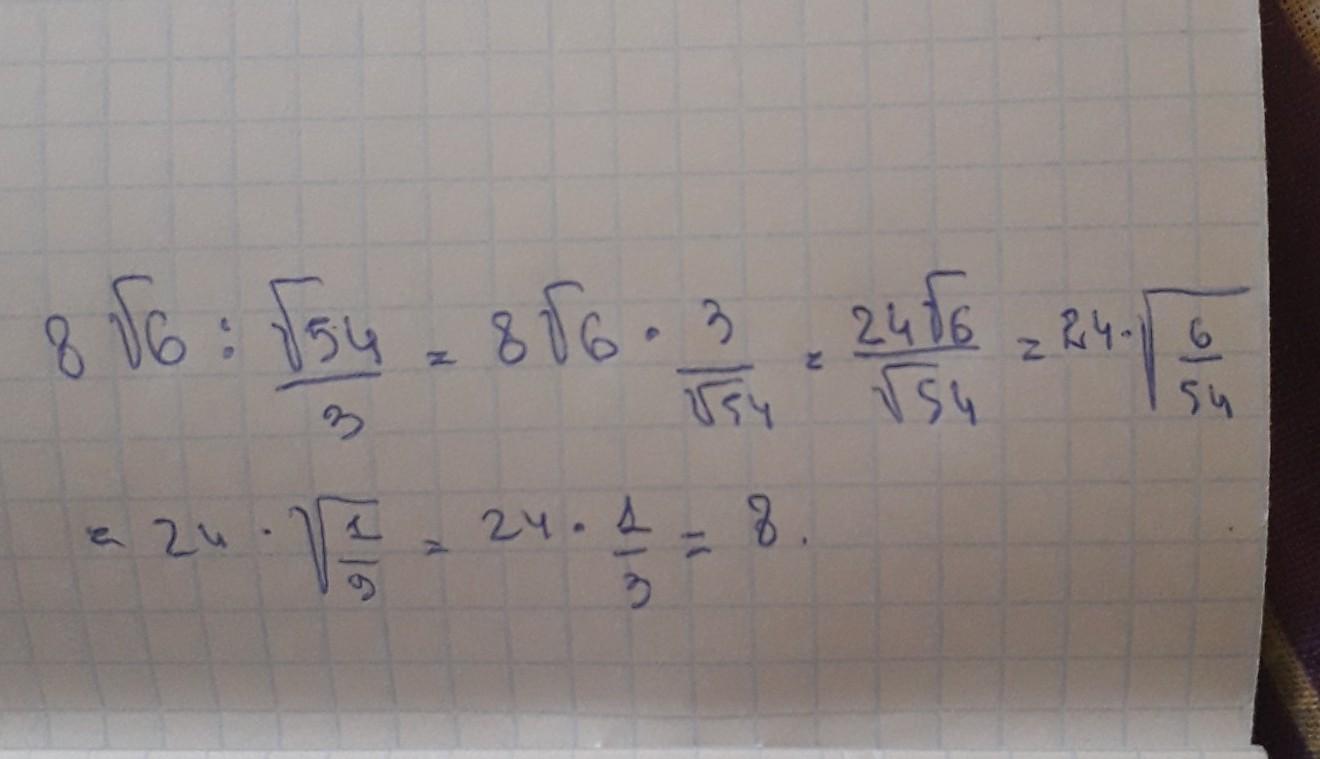 8√6 : √54/3 = 8√6 · 3/√54 = 24√6/√54 = 24·√(6/54)
= 24 · √(1/9) = 24 · 1/3 = 8.